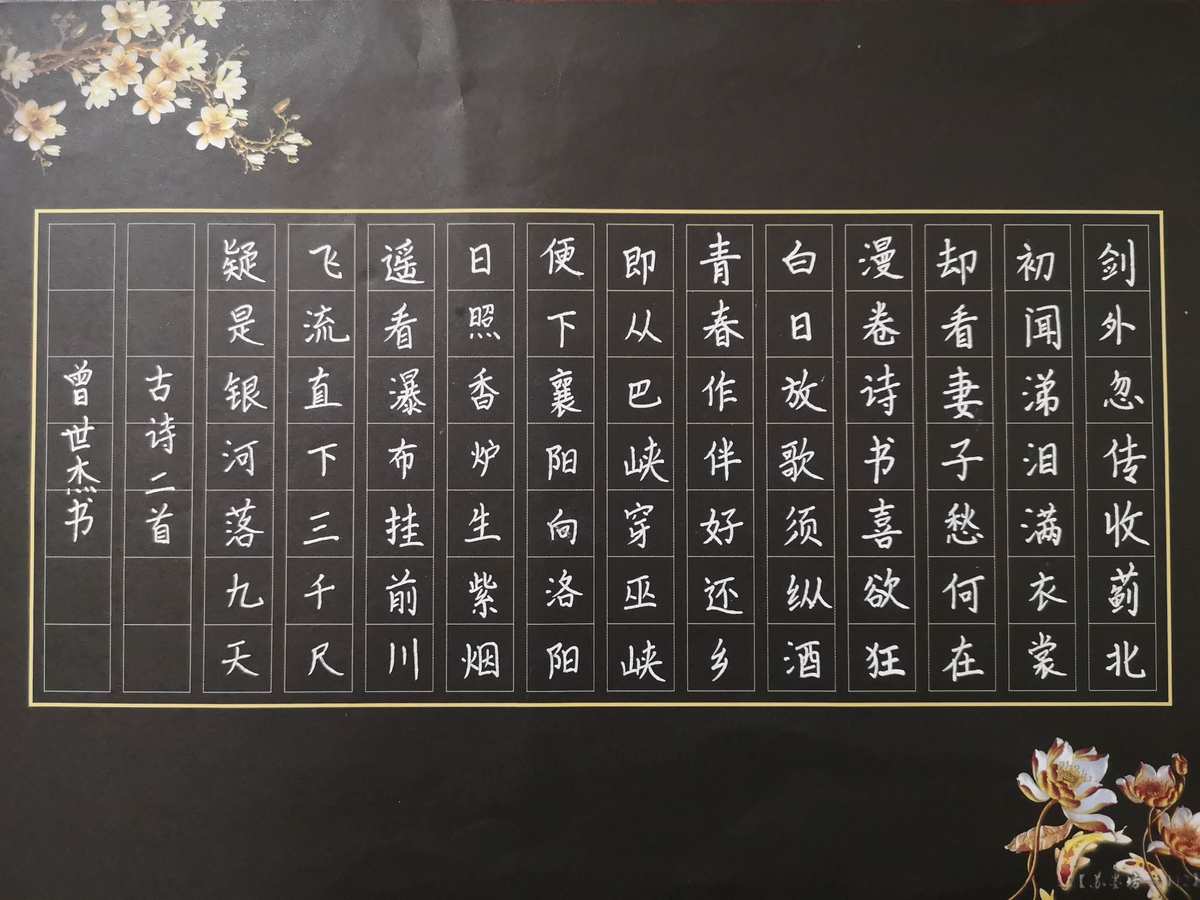 剑外忽传收蓟北
初闻涕泪满衣裳
却看妻子愁何在
漫卷诗书喜欲狂
白日放歌须纵酒
青春作伴好还乡
即从巴峡穿巫峡
便下襄阳向洛阳
日照香炉生紫烟
遥看瀑布挂前川
飞流直下三千尺
疑是银河落九天
古诗二首
曾世杰书